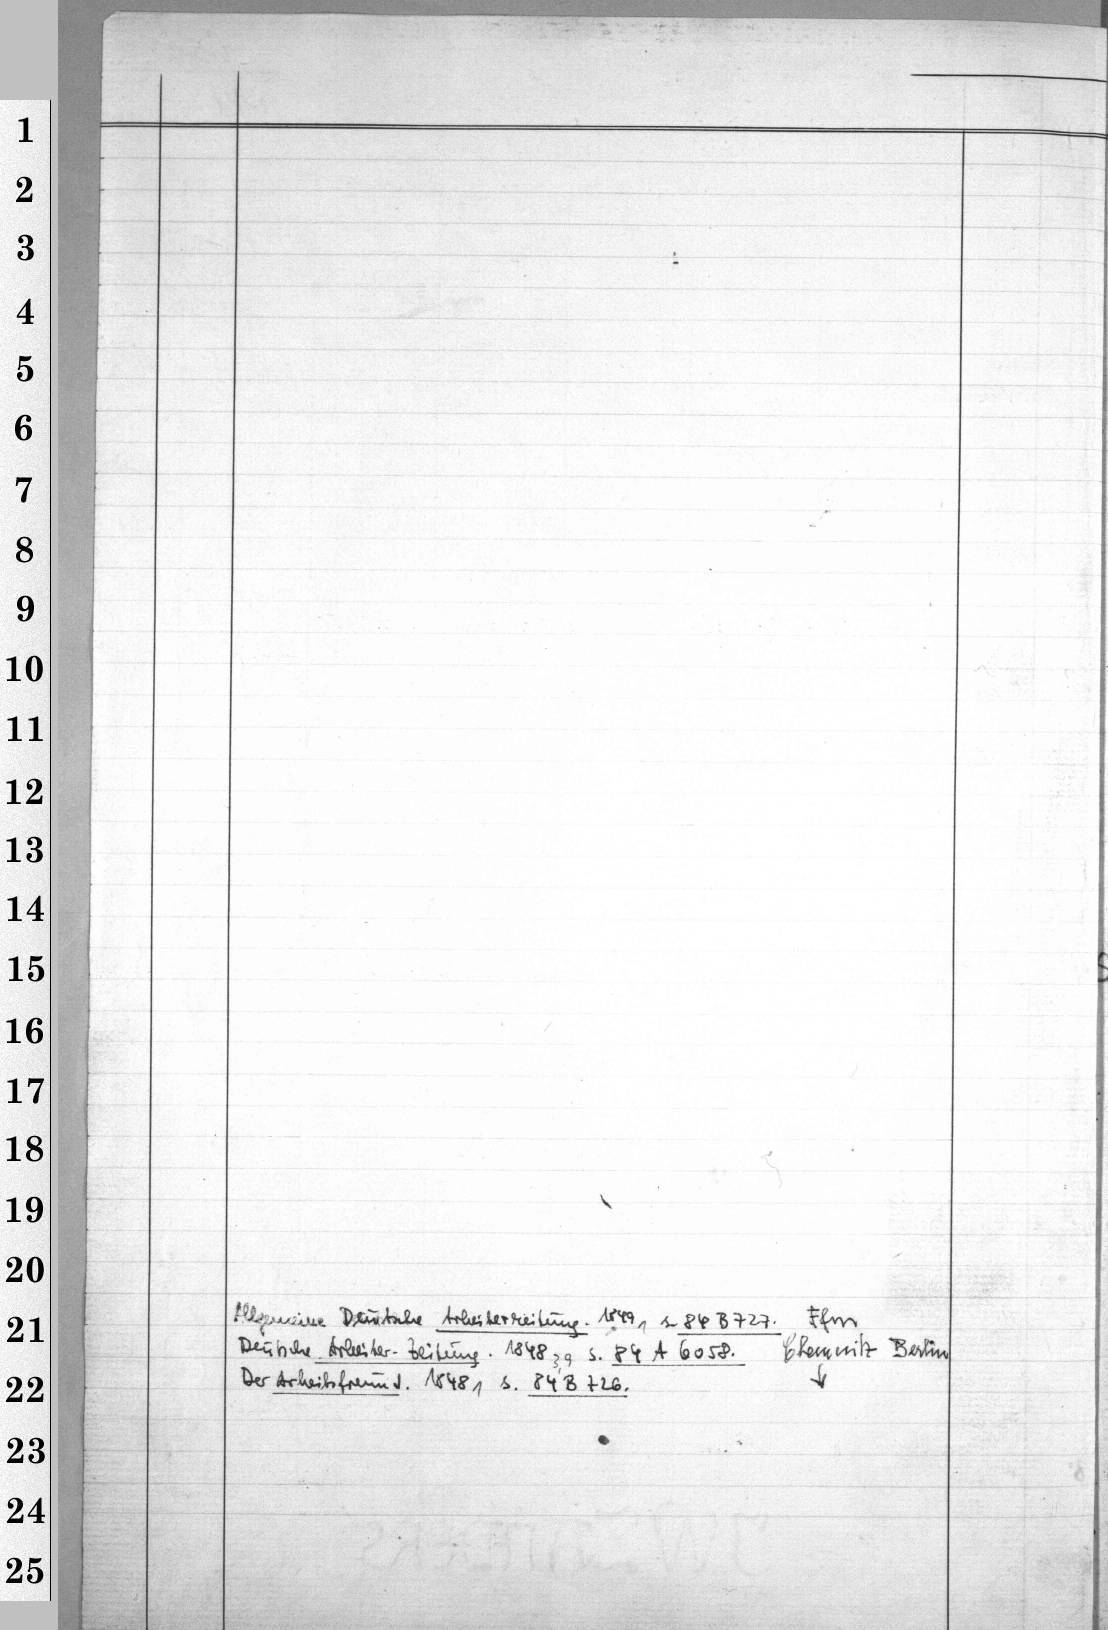 1
2
3
4
5
6
7
8
9
10
11
12
13
14
15
16
17
18
19
20
21
22
23
24
25
Allgemeine Deutsche Arbeiterzeitung. 1849, 1 s. 84 B 727. Ffm
Deutsche Arbeiter-Zeitung. 1848, 3,9 s. 84 A 6058. Chemnitz Berlin
Der Arbeitsfreund. 1848, 1 s. 84 B 726.